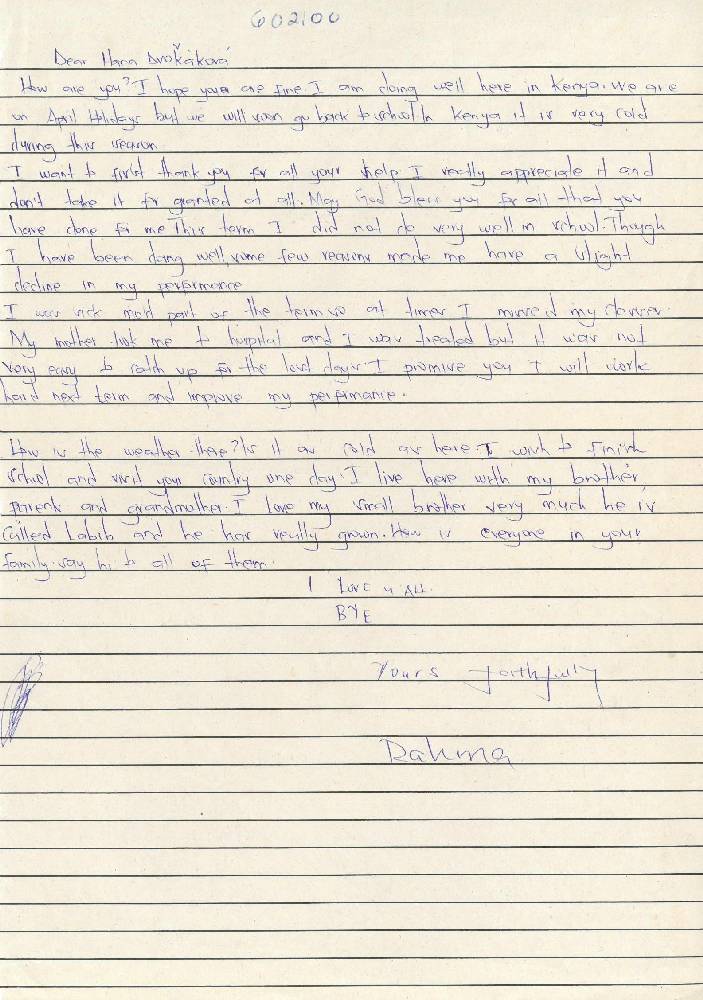 602100
Dear Hana Dvořáková
How are you? I hope you are fine. I am doing well here in Kenya. We are
on April Holidays but we will soon go back to school In Kenya it is very cold
during this season
I want to first thank you for all your help I really appreciate it and
don't take it for granted at all. May God bless you for all that you
have done for me This term I did not do very well in school. Though
I have been doing well, some few reasons made me have a slight
decline in my performance
I was sick most part of the term so at times I missed my classes.
My mother took me to hospital and I was treated but it was not
very easy to catch up for the lost days. I promise you I will work
hard next term and improve my performance.
How is the weather there? Is it as cold as here I wish to finish
school and visit your country one day. I live here with my brother,
parents and grandmother. I love my small brother very much he is
called Labib and he has really grown. How is everyone in your
family. say hi to all of them.
I LOVE u ALL.
BYE
Yours faithfully
Rahma